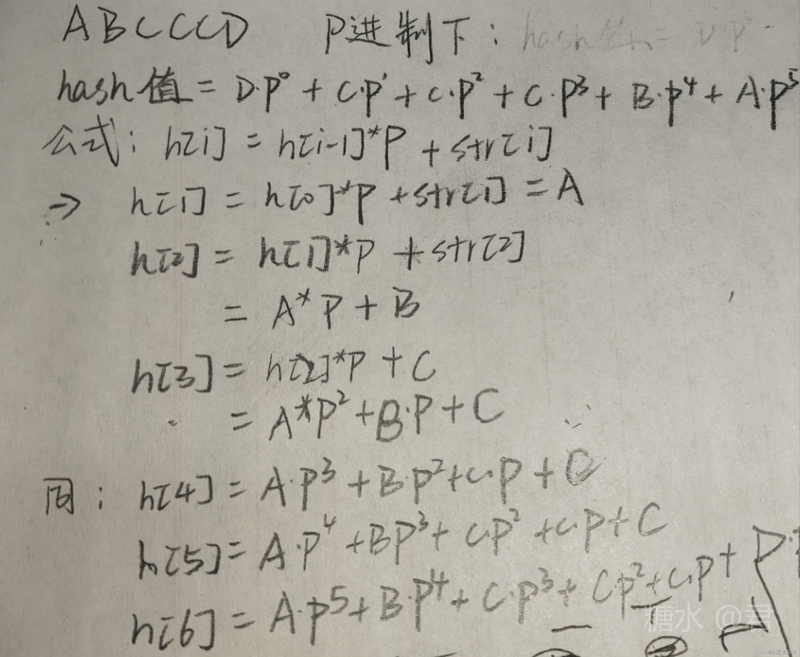 ABCCCD P进制下: hash
hash值 = D·P⁰ + C·P¹ + C·P² + C·P³ + B·P⁴ + A·P⁵
公式: h[i] = h[i-1]*P + str[i]
→ h[1] = h[0]*P + str[1] = A
h[2] = h[1]*P + str[2]
= A*P + B
h[3] = h[2]*P + C
= A*P² + B·P + C
同: h[4] = A·P³ + B·P² + C·P + C
h[5] = A·P⁴ + BP³ + CP² + C·P + C
h[6] = A·P⁵ + B·P⁴ + C·P³ + CP² + C·P + D·P
糖水 @君